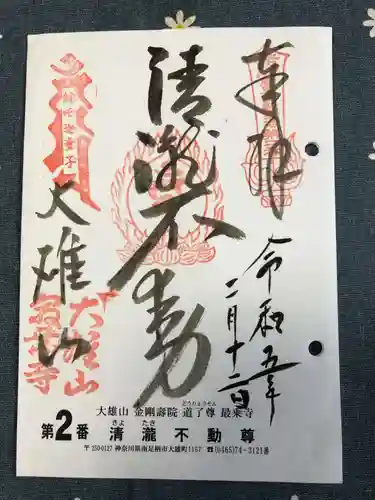 奉拝
令和五年
二月十二日
清瀧不動
大雄山
大雄山
最乗寺
大雄山 金剛壽院 道了尊 最乗寺
どうりょうそん
第2番 清瀧不動尊
きよ たき
〒250-0127 神奈川県南足柄市大雄町1157 ☎(0465)74-3121番